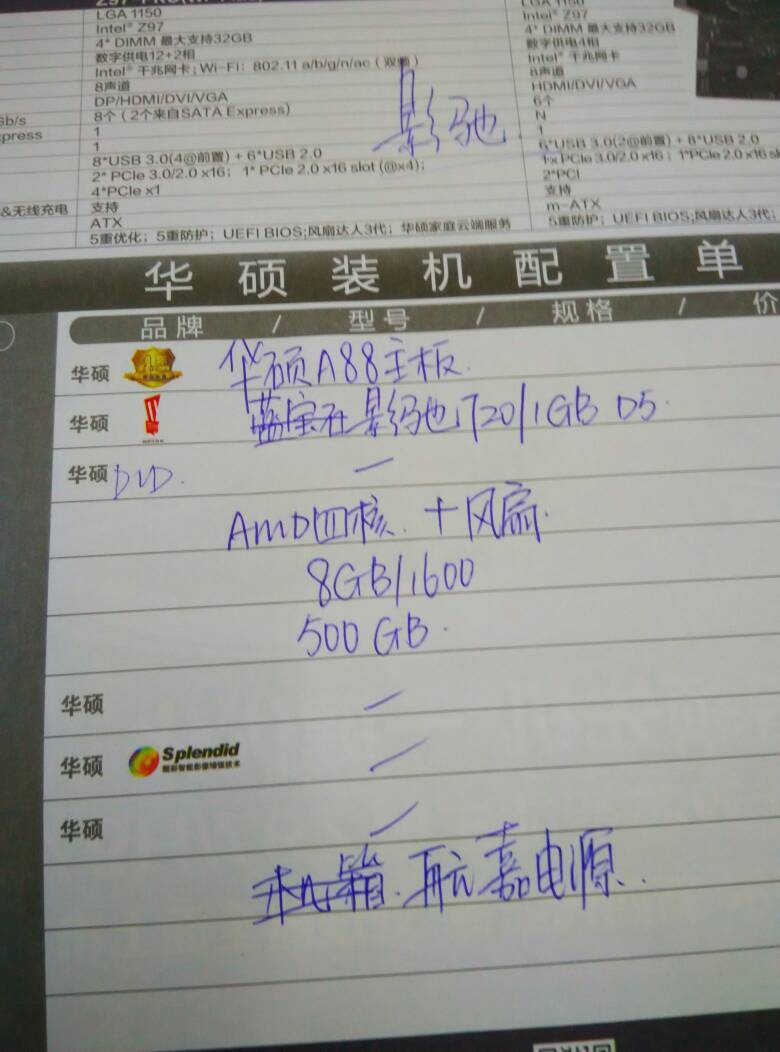 LGA 1150
Intel® Z97
4* DIMM 最大支持32GB
数字供电12+2相
Intel® 千兆网卡; Wi-Fi: 802.11 a/b/g/n/ac (双频)
8声道
DP/HDMI/DVI/VGA
8个 (2个来自SATA Express)
1
1
8*USB 3.0(4@前置) + 6*USB 2.0
2* PCIe 3.0/2.0 x16; 1* PCIe 2.0 x16 slot (@x4);
4*PCIe x1
支持
ATX
5重优化; 5重防护; UEFI BIOS;风扇达人3代; 华硕家庭云端服务
Gb/s
xpress
&无线充电
LGA 1150
Intel® Z97
4* DIMM 最大支持32GB
数字供电4相
Intel® 千兆网卡
8声道
HDMI/DVI/VGA
6个
N
1
6*USB 3.0(2@前置) + 8*USB 2.0
1x PCIe 3.0/2.0 x16; 1*PCIe 2.0 x16
2*PCI
支持
m-ATX
5重防护; UEFI BIOS;风扇达人3代;
影驰
华硕装机配置单
品牌 / 型号 / 规格 / 价
华硕 华硕A88主板.
华硕 影驰 720/1GB D5.
华硕 DVD. —
AMD四核. +风扇.
8GB/1600
500 GB.
华硕 —
华硕 Splendid —
华硕 —
机箱. 航嘉电源.